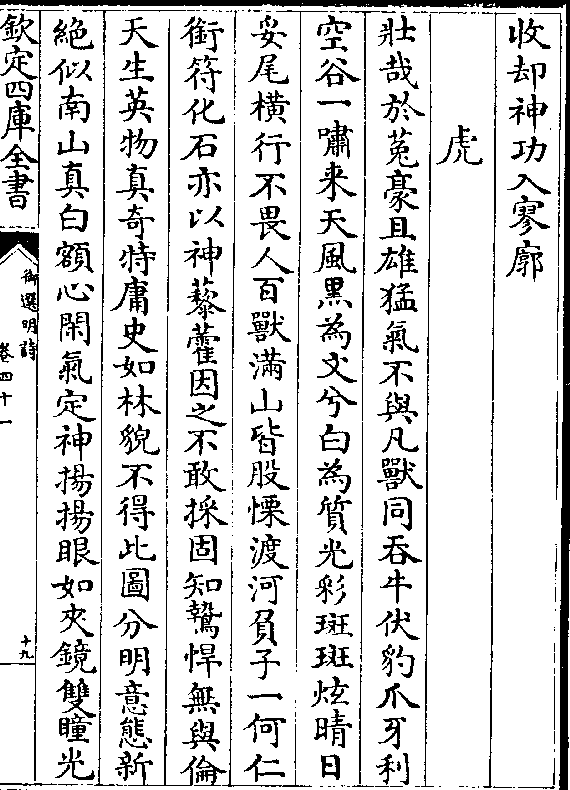 收却神功入寥廓
虎
壯哉於菟豪且雄猛氣不與凡獸同吞牛伏豹爪牙利
空谷一嘯来天風黑為文兮白為質光彩斑斑炫晴日
妥尾橫行不畏人百獸滿山皆股慄渡河負子一何仁
銜符化石亦以神藜藿因之不敢採固知鷙悍無與倫
天生英物真奇特庸史如林貌不得此圖分明意態新
絶似南山真白額心閑氣定神揚揚眼如夾鏡雙瞳光
欽定四庫全書
御選明詩
卷四十一
十九